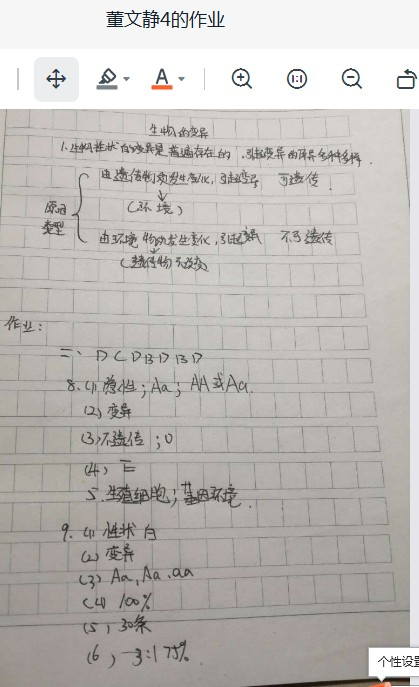 董文静4的作业
A
1:1
生物的变异
1.生物性状的变异是普遍存在的，引起变异的原因多种多样.
由遗传物质发生变化，引起变异 可遗传
(环境)
原因
类型
由环境 物质发生变化，引起变异 不可遗传
(遗传物质无改变)
作业：
二、D C D B D B D
8.(1)隐性；Aa；AA或Aa.
(2)变异
(3)不遗传；0
(4)，
5.生殖细胞；基因环境.
9.(1)性状 白
(2)变异
(3)Aa、Aa、aa
(4)100%
(5)，30条
(6)，3:1 75%.
个性设置